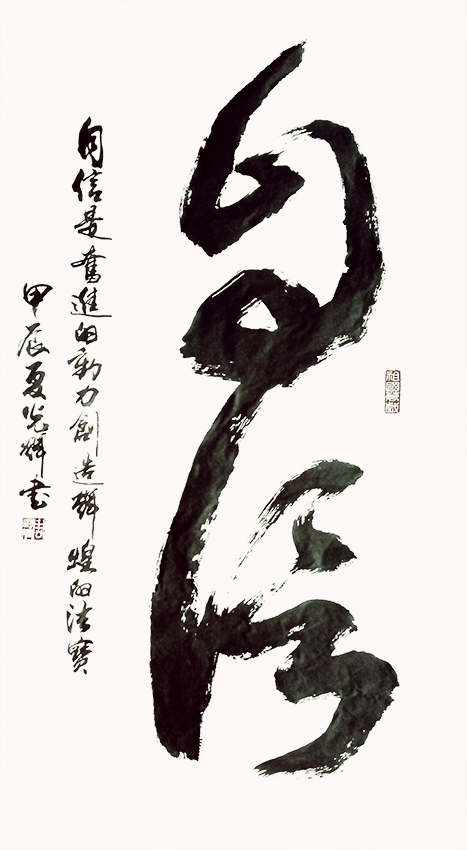 自信
自信是奮進的動力創造輝煌的法寶
甲辰夏光輝書